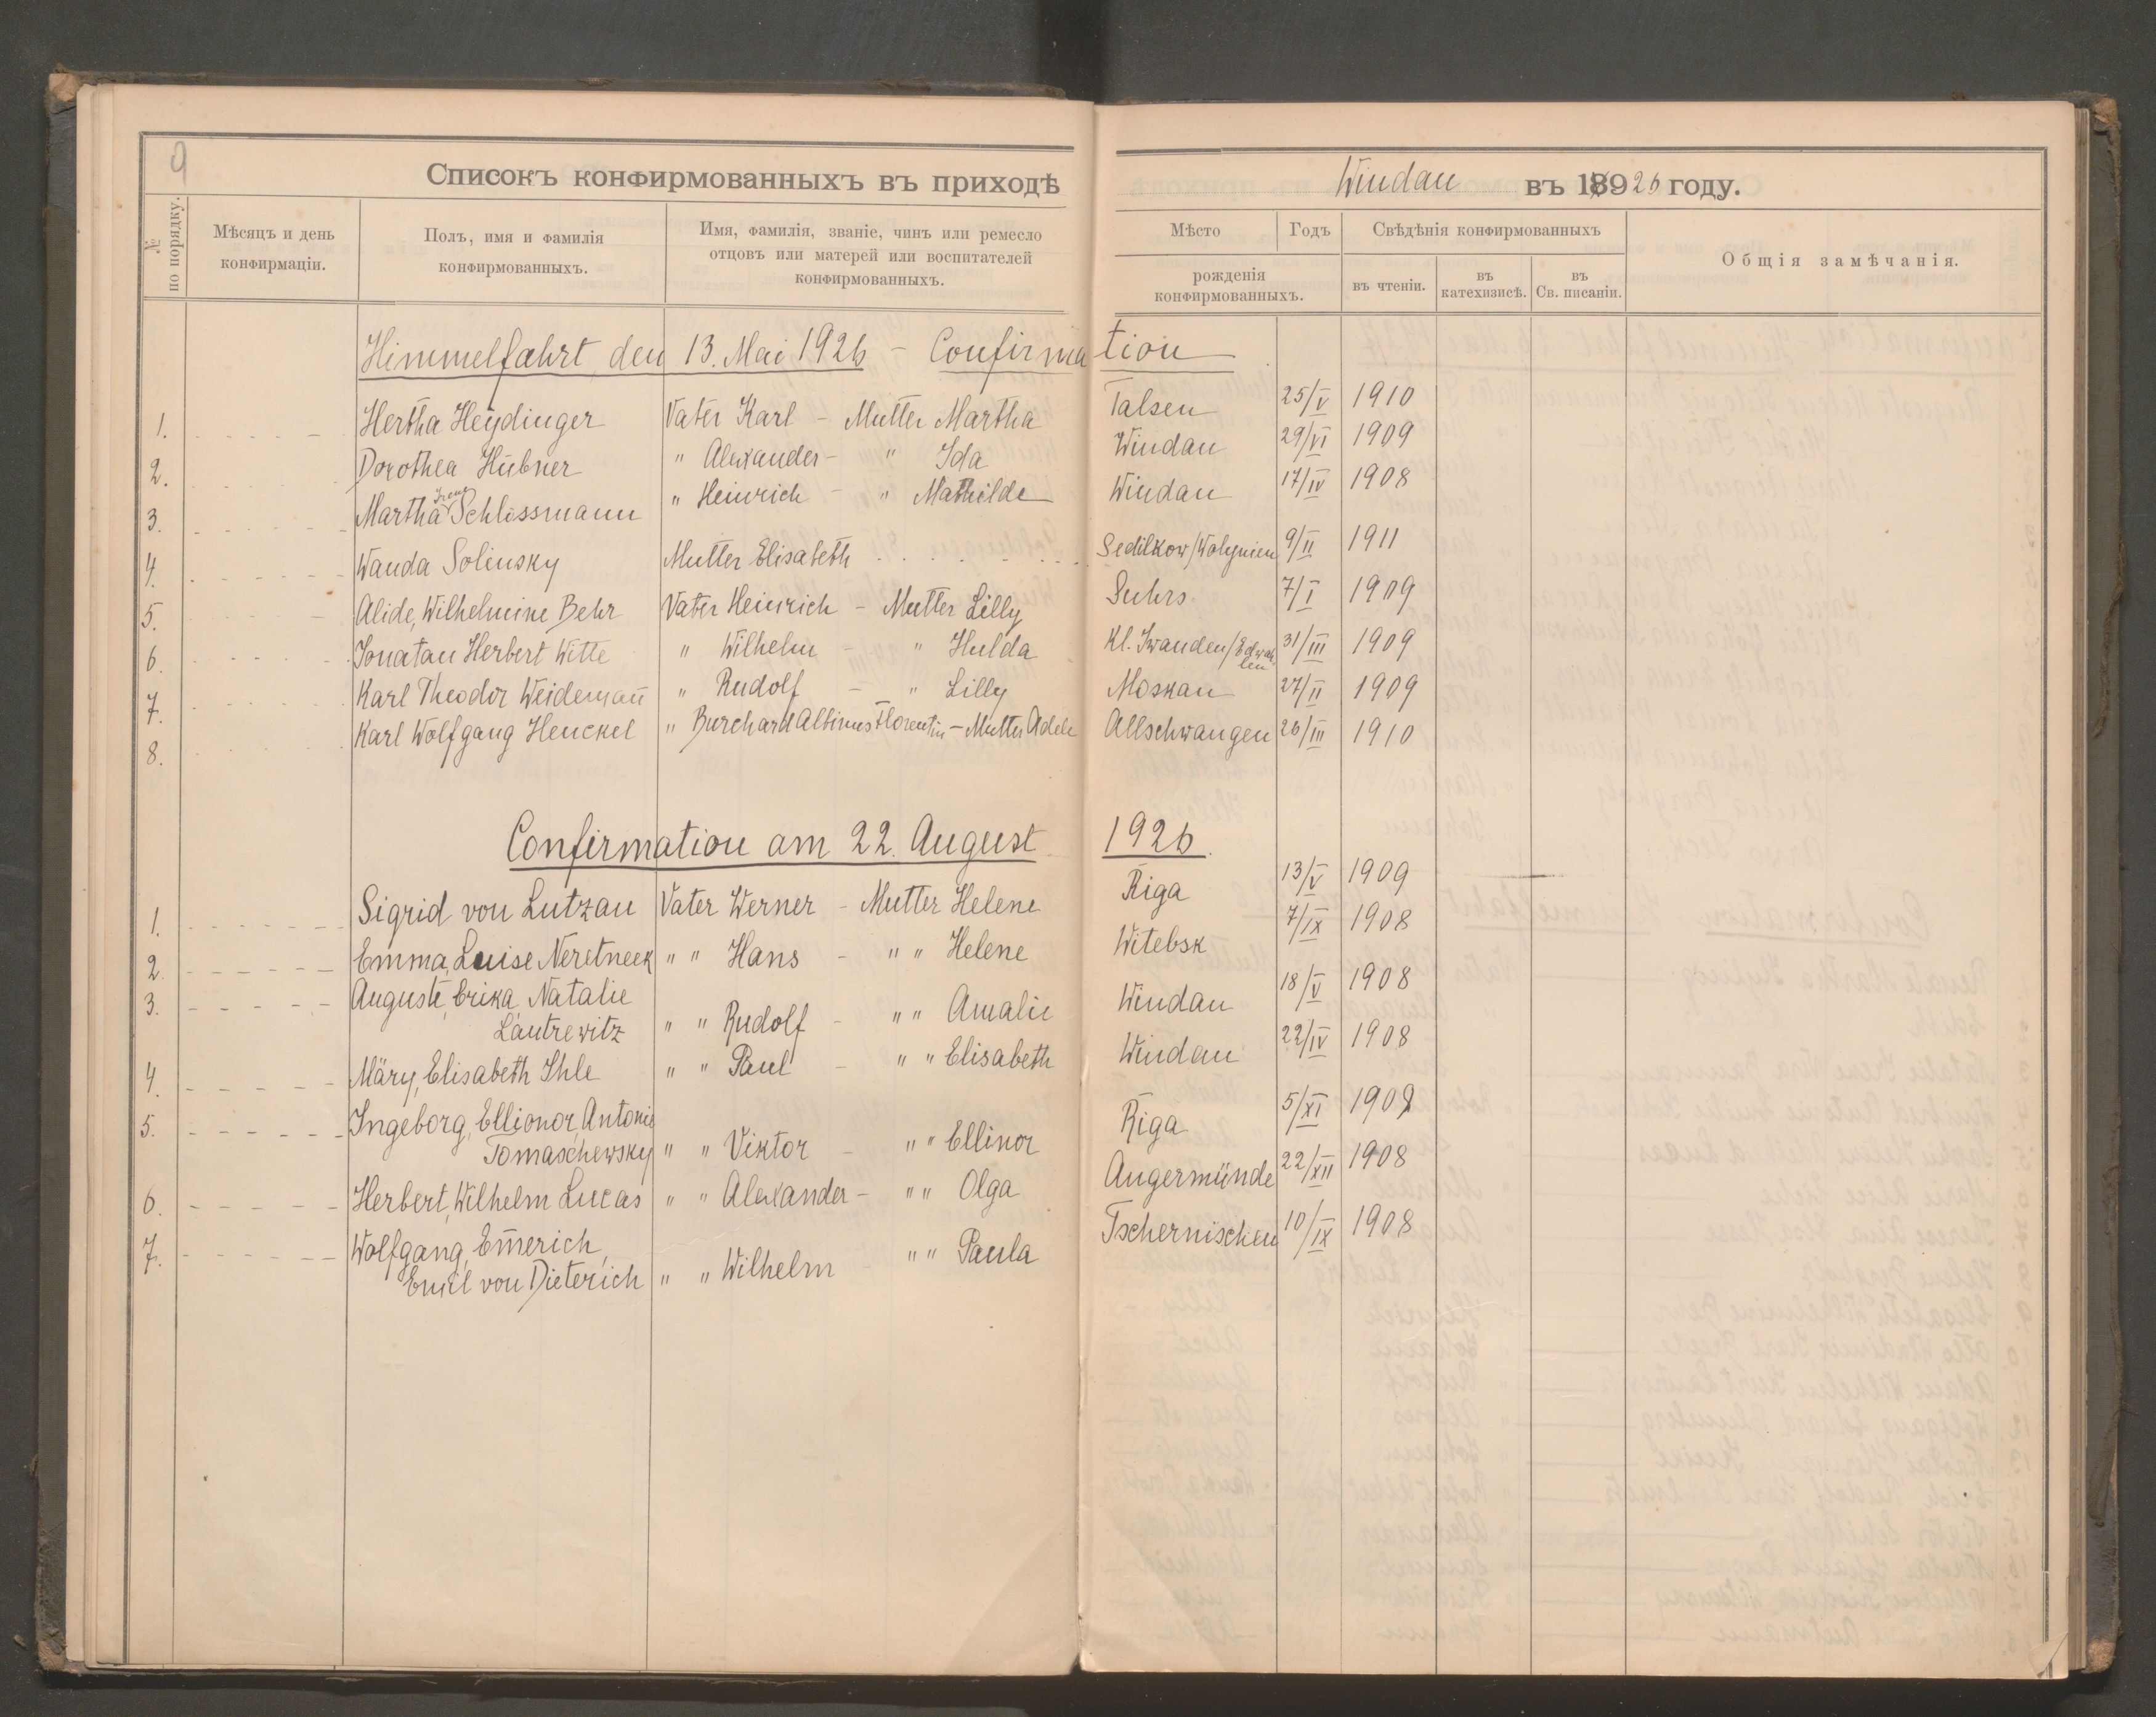 9
Списокъ конфирмованныхъ въ приходѣ Windau въ 1926 году.
№ по порядку.
Мѣсяцъ и день конфирмаціи.
Полъ, имя и фамилія конфирмованныхъ.
Имя, фамилія, званіе, чинъ или ремесло отцовъ или матерей или воспитателей конфирмованныхъ.
Мѣсто Годъ
рожденія конфирмованныхъ.
Свѣдѣнія конфирмованныхъ
въ чтеніи. въ катехизисѣ. въ Св. писаніи.
Общія замѣчанія.
Himmelfahrt, den 13. Mai 1926 - Confirmation
1. Hertha Heydinger Vater Karl - Mutter Martha Talsen 25/V 1910
2. Dorothea Hübner " Alexander - " Ida Windau 29/VI 1909
3. Martha Irene Schlossmann " Heinrich - " Mathilde Windau 17/IV 1908
4. Wanda Solinsky Mutter Elisabeth Sedilkow/Wolynien 9/II 1911
5. Alide, Wilhelmine Behr Vater Heinrich - Mutter Lilly Suhrs 7/I 1909
6. Jonatan Herbert Witte " Wilhelm - " Hulda Kl. Iwanden/Edwahlen 31/III 1909
7. Karl Theodor Weideman̄ " Rudolf - " Lilly Moskau 27/II 1909
8. Karl Wolfgang Henckel " Burchard Albinus Florentin - Mutter Adele Allschwangen 26/III 1910
Confirmation am 22. August 1926.
1. Sigrid von Lutzau Vater Werner - Mutter Helene Riga 13/V 1909
2. Emma, Luise Neretneek " " Hans - " " Helene Witebsk 7/IX 1908
3. Auguste, Erika, Natalie
Lautrewitz " " Rudolf - " " Amalie Windau 18/V 1908
4. Märy, Elisabeth Ihle " " Paul - " " Elisabeth Windau 22/IV 1908
5. Ingeborg, Ellionor, Antonie
Tomaschewsky " " Viktor - " " Ellinor Riga 5/XI 1909
6. Herbert, Wilhelm Lucas " " Alexander - " " Olga Angermünde 22/XII 1908
7. Wolfgang, Em̄erich,
Emil von Dieterich " " Wilhelm - " " Paula Tschernischen 10/IX 1908